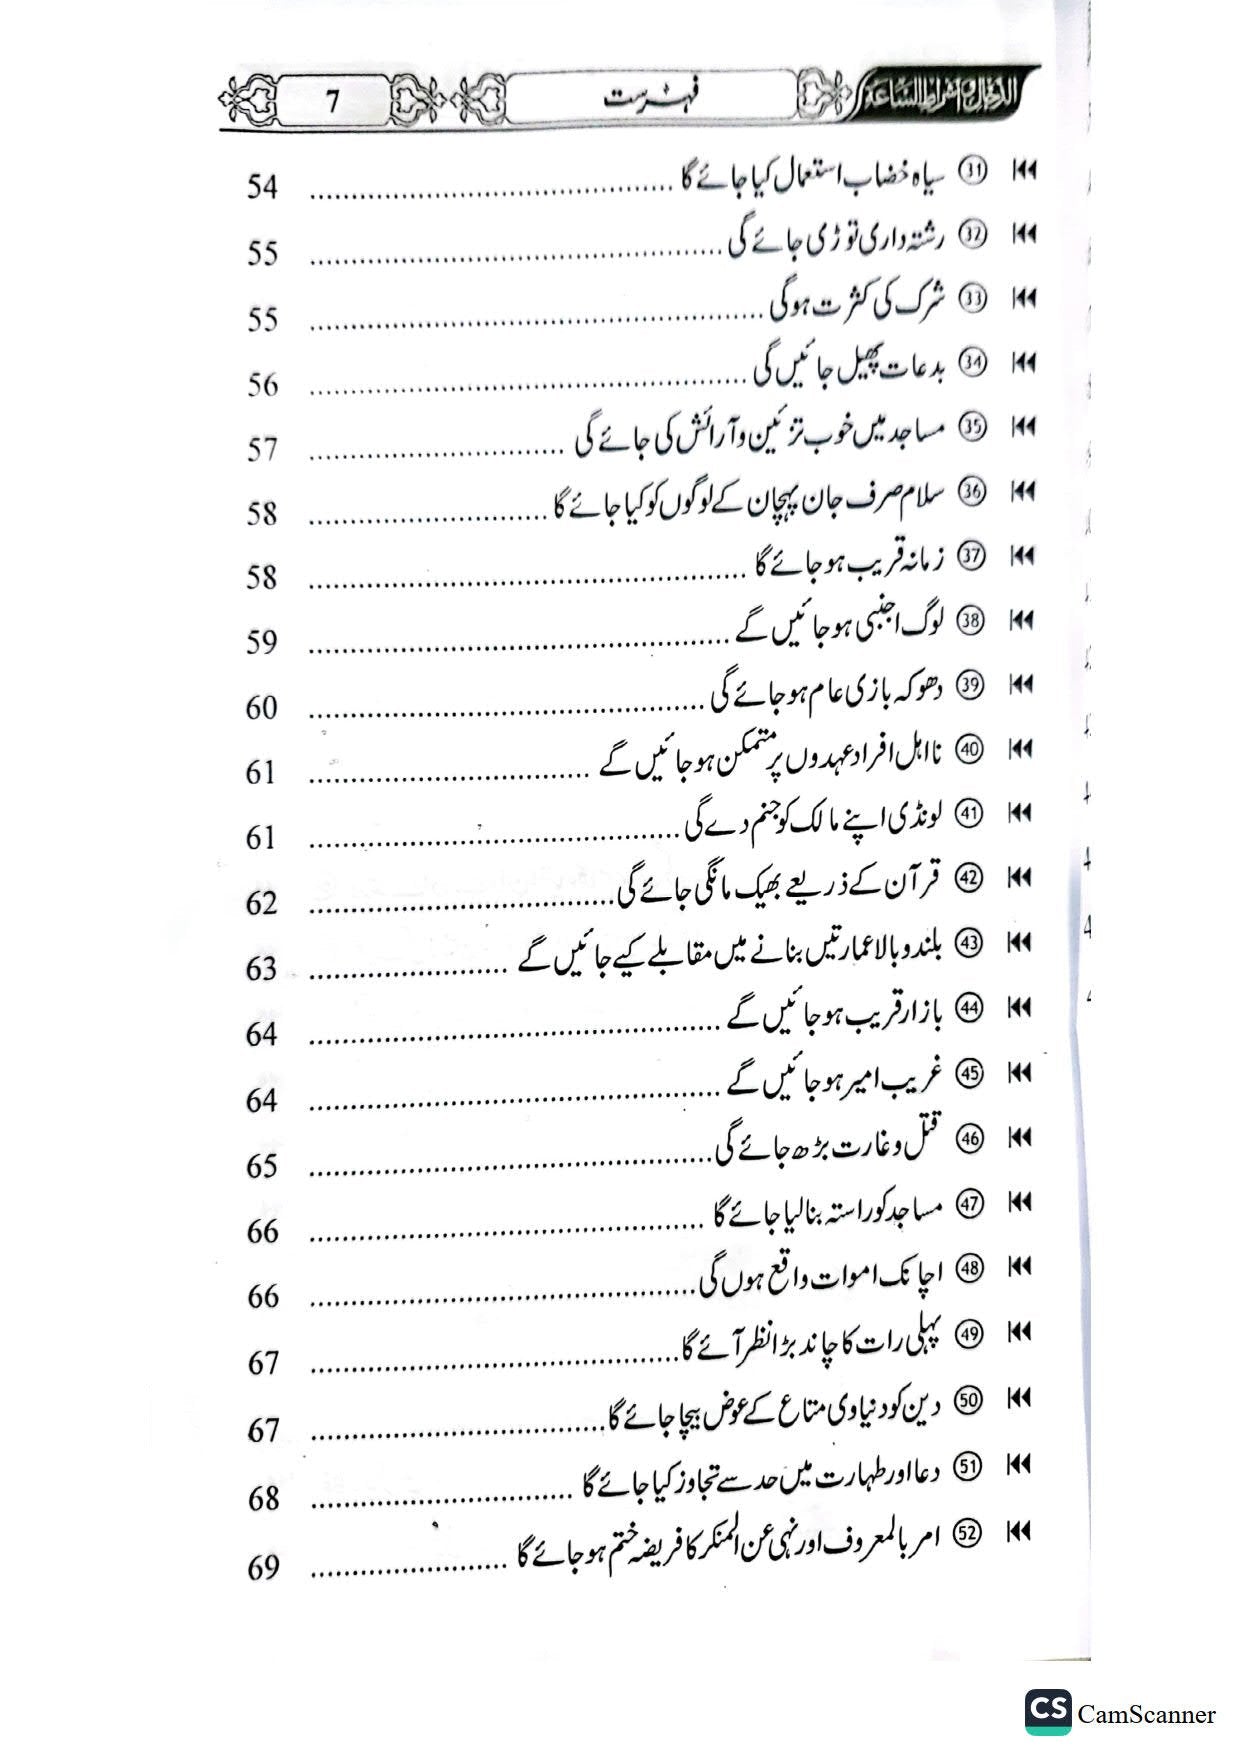 الدجال و اشراط الساعة فہرست 7
㉛ سیاہ خضاب استعمال کیا جائے گا ........ 54
㉜ رشتہ داری توڑی جائے گی ........ 55
㉝ شرک کی کثرت ہوگی ........ 55
㉞ بدعات پھیل جائیں گی ........ 56
㉟ مساجد میں خوب تزئین و آرائش کی جائے گی ........ 57
㊱ سلام صرف جان پہچان کے لوگوں کو کیا جائے گا ........ 58
㊲ زمانہ قریب ہو جائے گا ........ 58
㊳ لوگ اجنبی ہو جائیں گے ........ 59
㊴ دھوکہ بازی عام ہو جائے گی ........ 60
㊵ نا اہل افراد عہدوں پر متمکن ہو جائیں گے ........ 61
㊶ لونڈی اپنے مالک کو جنم دے گی ........ 61
㊷ قرآن کے ذریعے بھیک مانگی جائے گی ........ 62
㊸ بلند و بالا عمارتیں بنانے میں مقابلے کیے جائیں گے ........ 63
㊹ بازار قریب ہو جائیں گے ........ 64
㊺ غریب امیر ہو جائیں گے ........ 64
㊻ قتل و غارت بڑھ جائے گی ........ 65
㊼ مساجد کو راستہ بنا لیا جائے گا ........ 66
㊽ اچانک اموات واقع ہوں گی ........ 66
㊾ پہلی رات کا چاند بڑا نظر آئے گا ........ 67
㊿ دین کو دنیاوی متاع کے عوض بیچا جائے گا ........ 67
(51) دعا اور طہارت میں حد سے تجاوز کیا جائے گا ........ 68
(52) امر بالمعروف اور نہی عن المنکر کا فریضہ ختم ہو جائے گا ........ 69
CS CamScanner